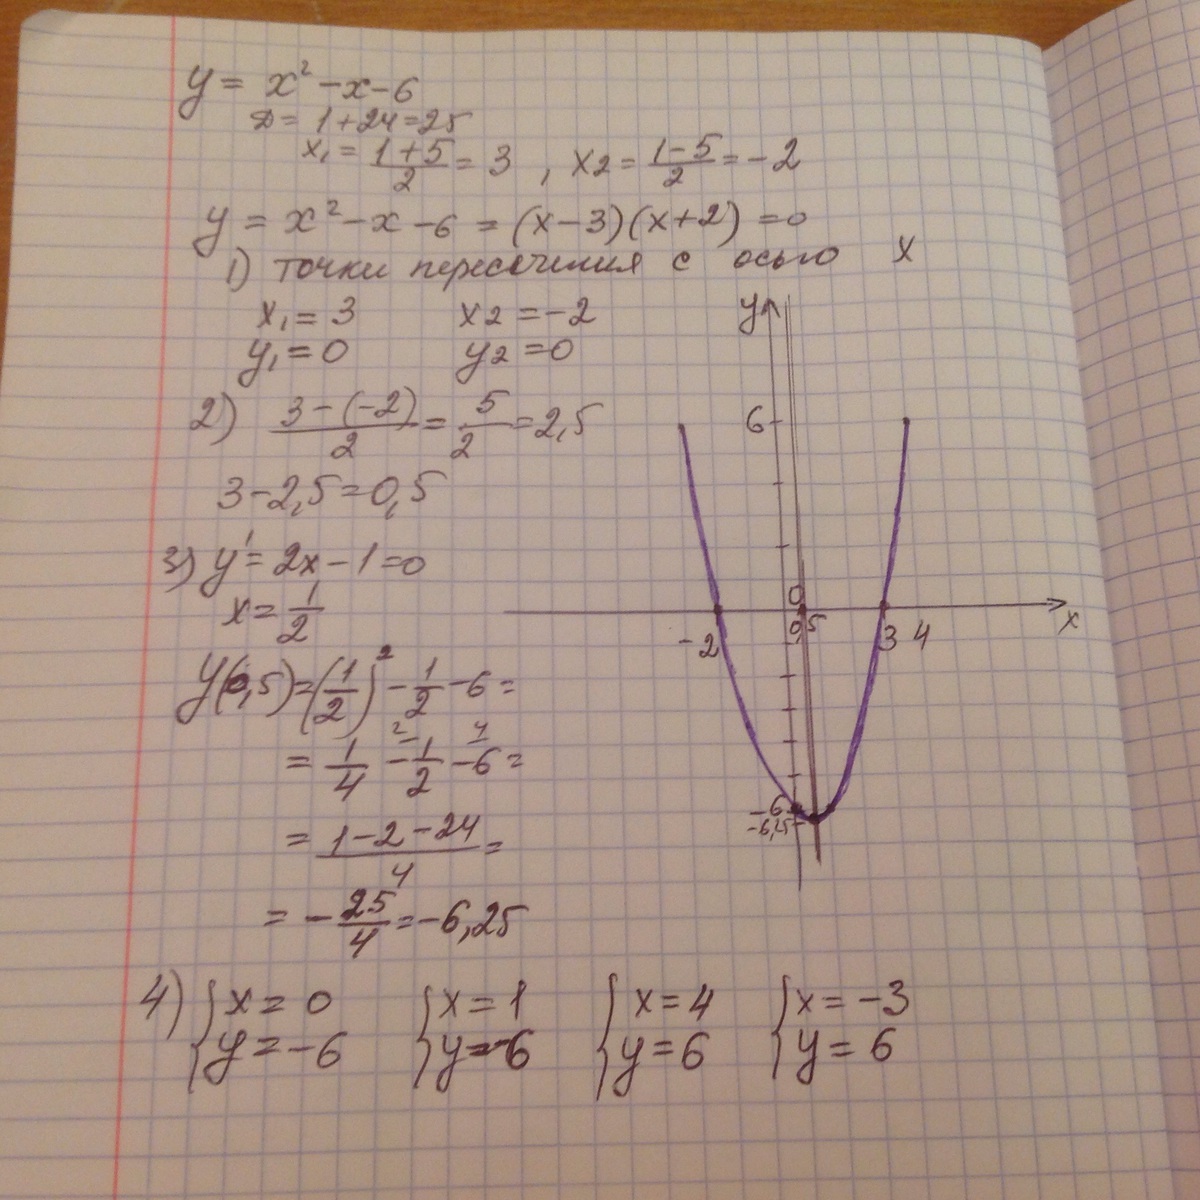 y = x² - x - 6
D = 1 + 24 = 25
x₁ = (1+5)/2 = 3 , x2 = (1-5)/2 = -2
y = x² - x - 6 = (x-3)(x+2) = 0
1) точки пересечения с осью x
x₁ = 3 x2 = -2
y₁ = 0 y2 = 0
2) (3-(-2))/2 = 5/2 = 2,5
3 - 2,5 = 0,5
3) y' = 2x - 1 = 0
x = 1/2
y(0,5) = (1/2)² - 1/2 - 6 =
= 1/4 - 1/2 - 6 =
2 4
= (1-2-24)/4 =
= -25/4 = -6,25
4) { x = 0 { x = 1 { x = 4 { x = -3
y = -6 y = -6 y = 6 y = 6
y
6
0
-2 0,5 3 4 x
-6
-6,25